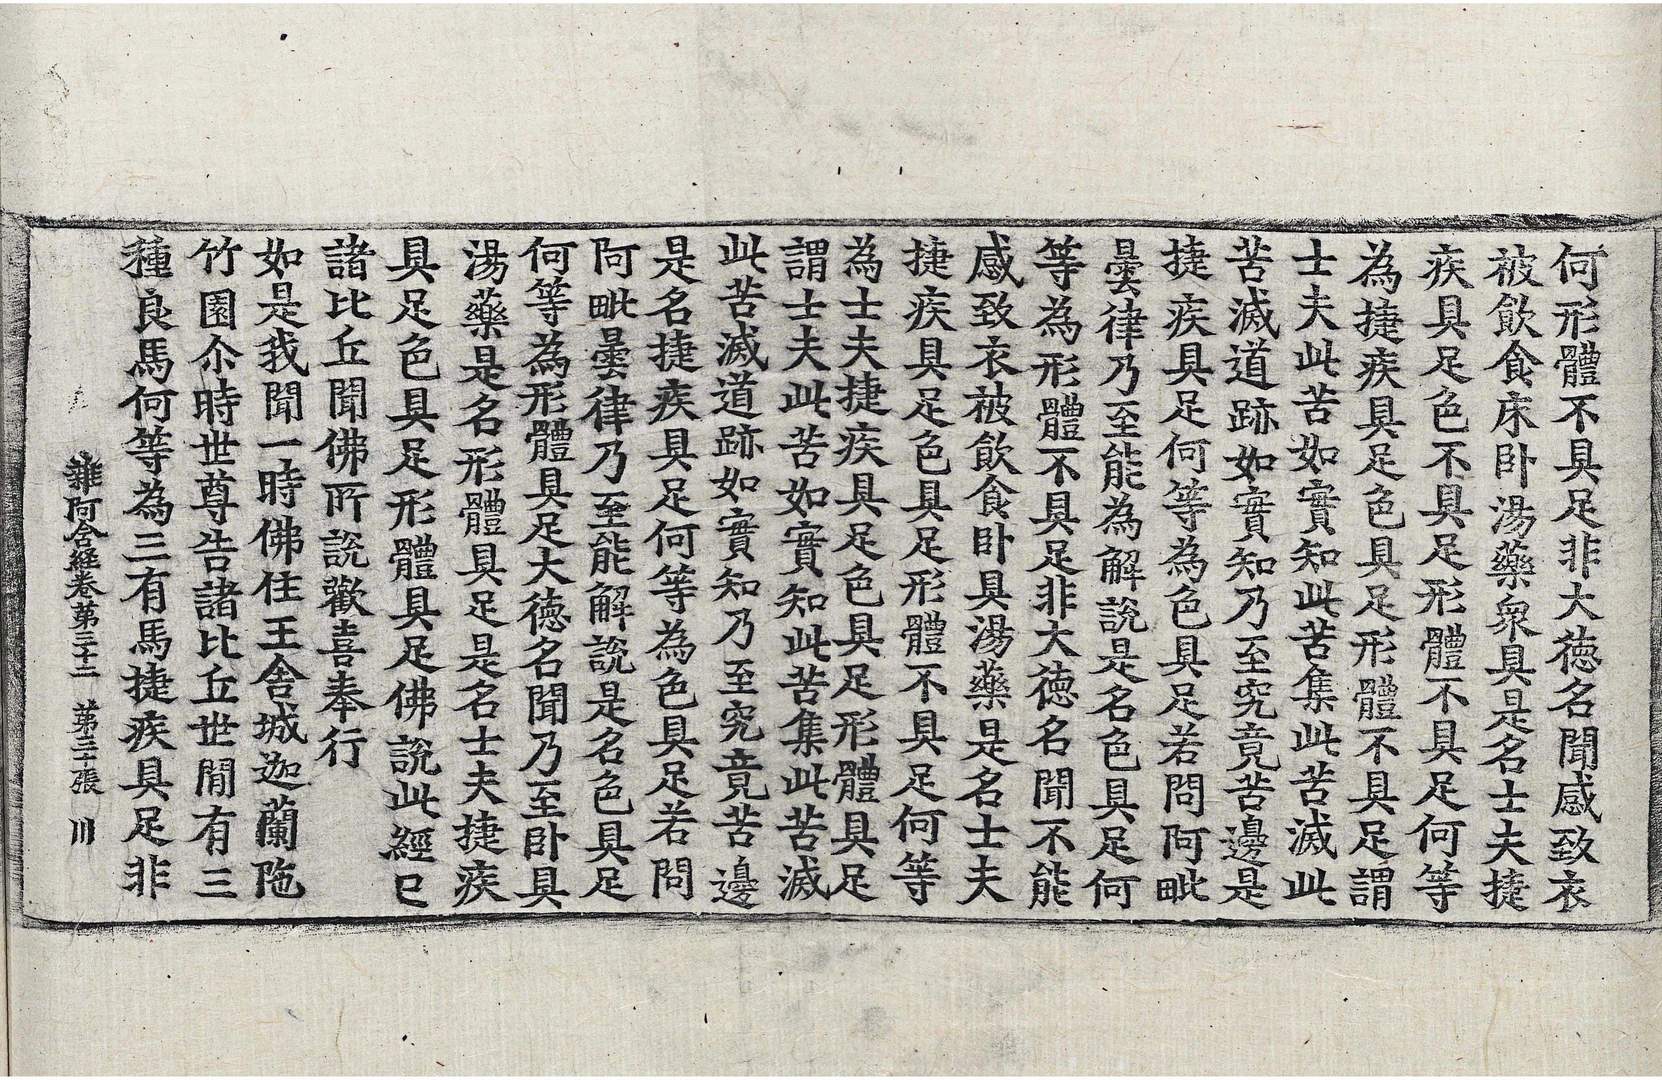 何形體不具足非大德名聞感致衣
被飲食床卧湯藥衆具是名士夫捷
疾具足色不具足形體不具足何等
為捷疾具足色具足形體不具足謂
士夫此苦如實知此苦集此苦滅此
苦滅道跡如實知乃至究竟苦邊是
捷疾具足何等為色具足若問阿毗
曇律乃至能為解說是名色具足何
等為形體不具足非大德名聞不能
感致衣被飲食卧具湯藥是名士夫
捷疾具足色具足形體不具足何等
為士夫捷疾具足色具足形體具足
謂士夫此苦如實知此苦集此苦滅
此苦滅道跡如實知乃至究竟苦邊
是名捷疾具足何等為色具足若問
阿毗曇律乃至能解說是名色具足
何等為形體具足大德名聞乃至卧具
湯藥是名形體具足是名士夫捷疾
具足色具足形體具足佛說此經已
諸比丘聞佛所說歡喜奉行
如是我聞一時佛住王舍城迦蘭陁
竹園尒時世尊告諸比丘世閒有三
種良馬何等為三有馬捷疾具足非
雜阿含經卷第三十三　第三十張　川